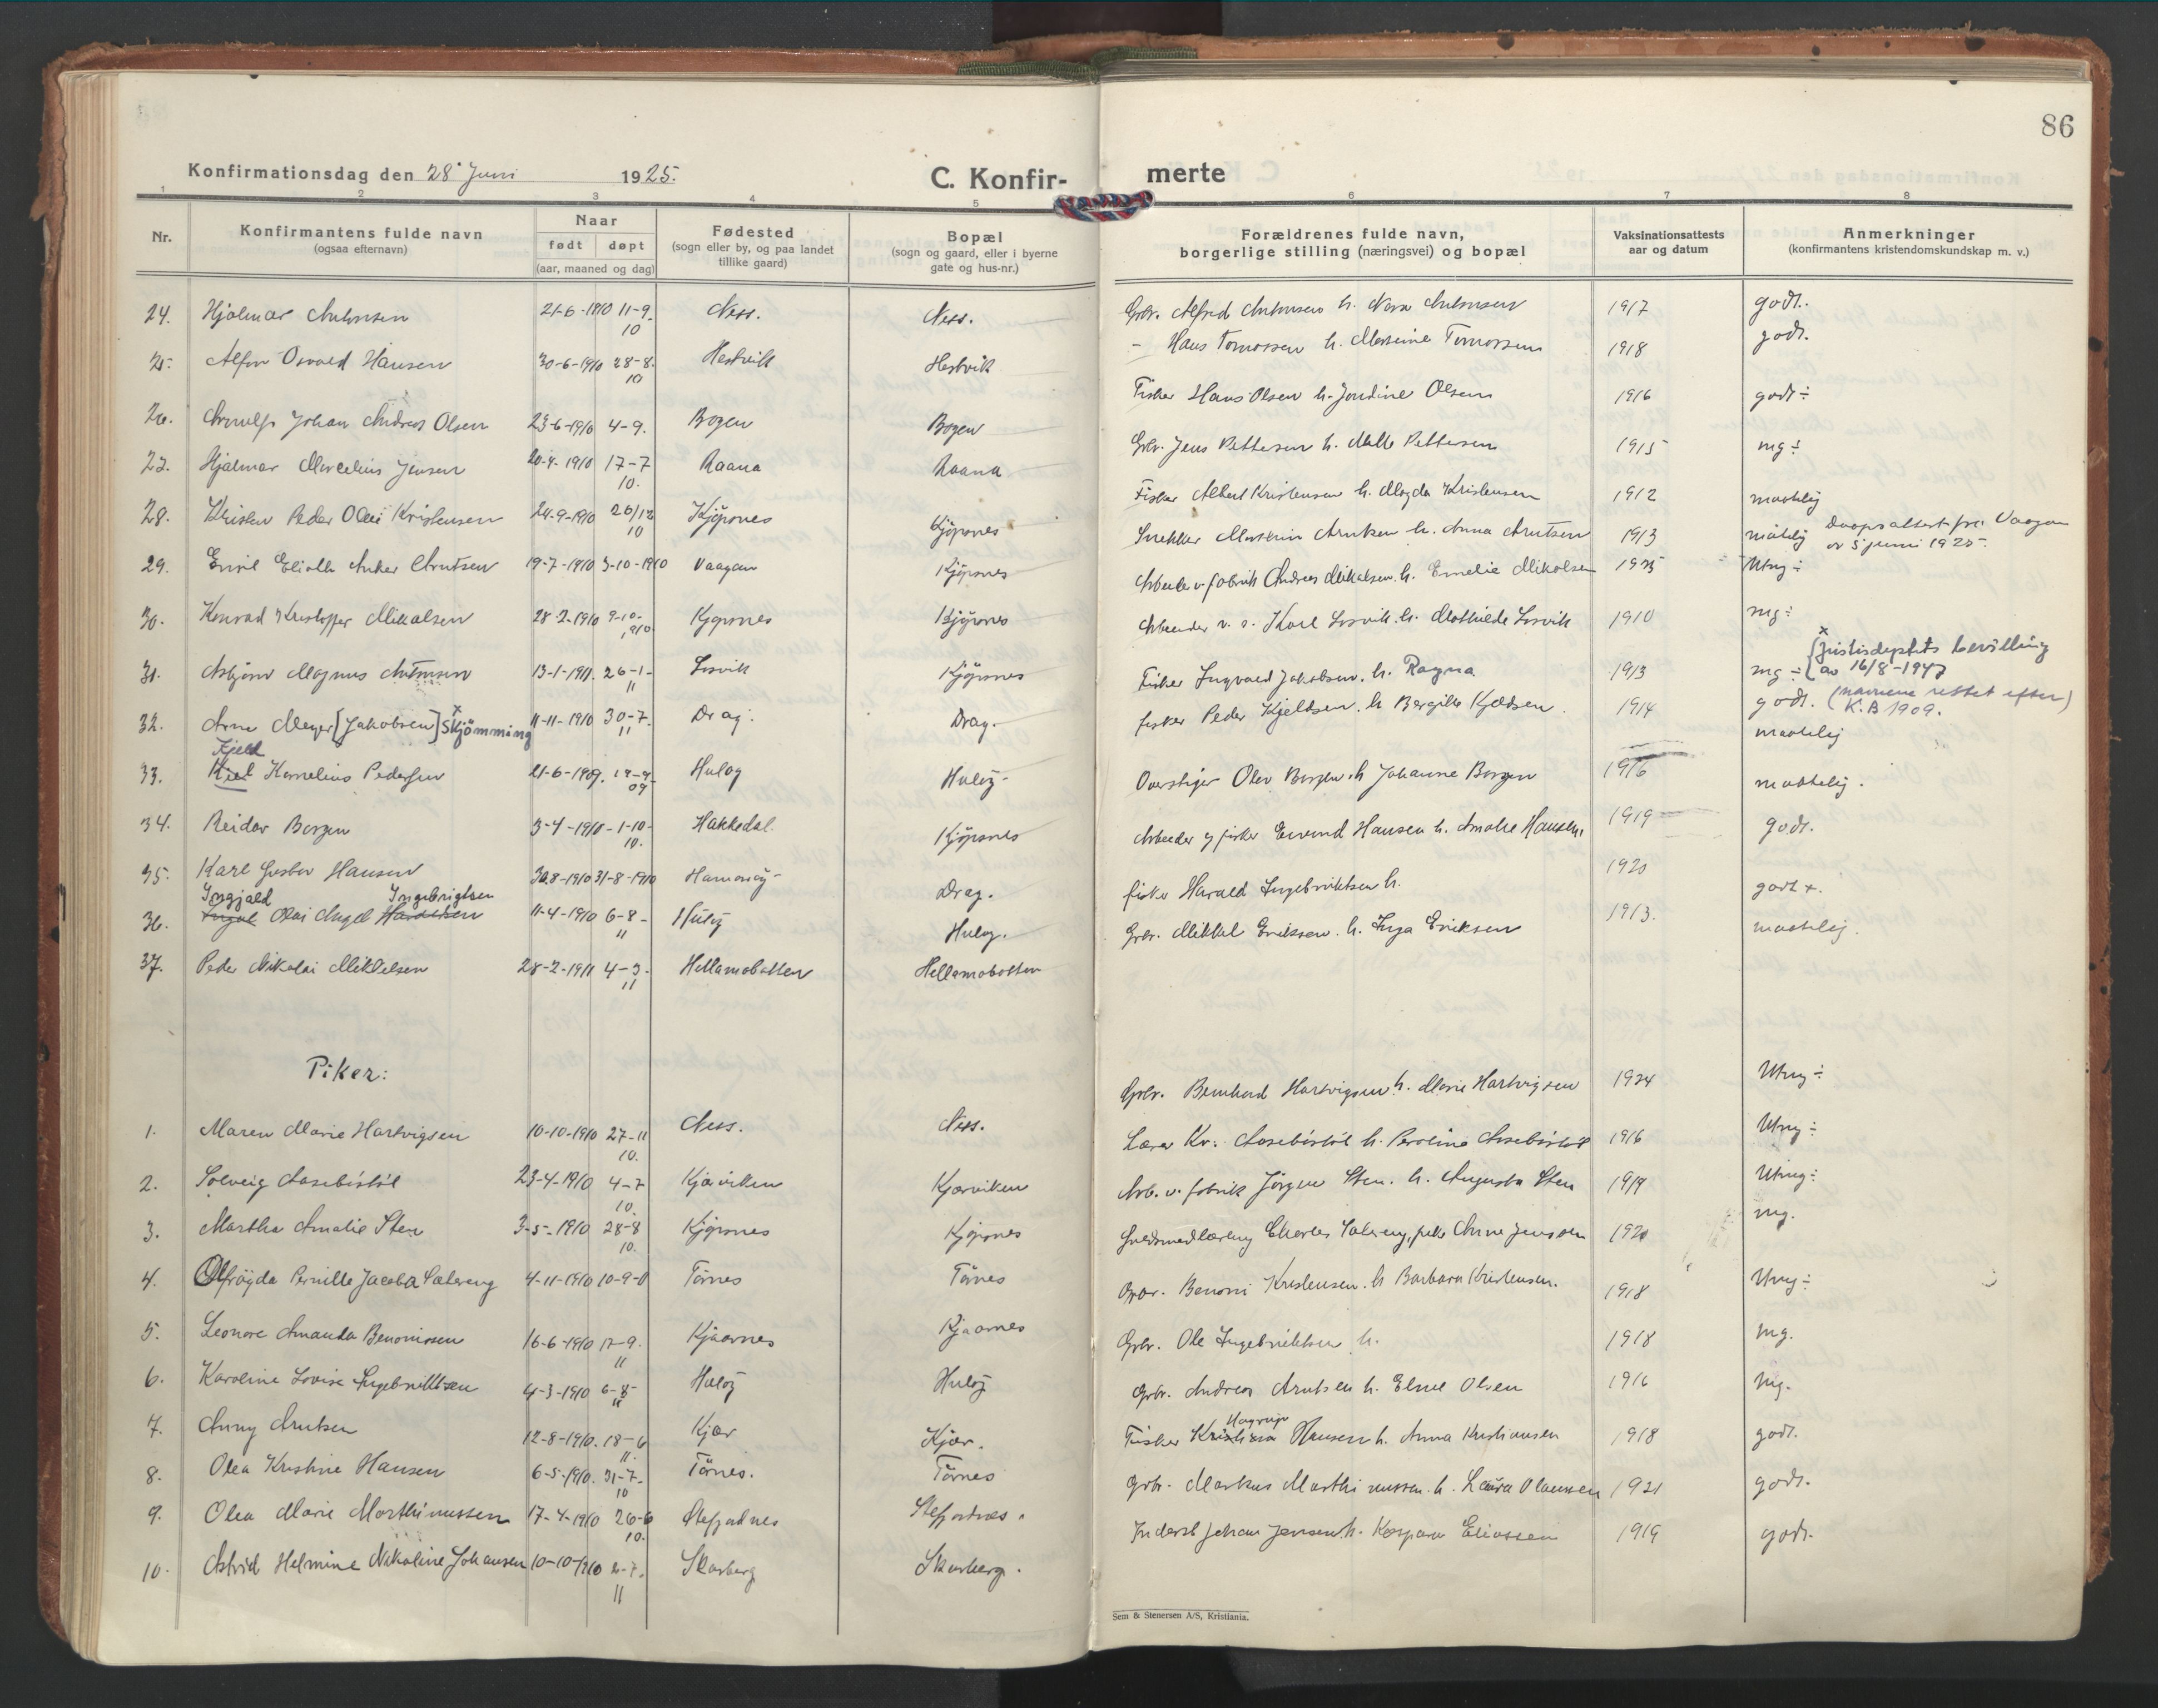 86
Konfirmationsdag den 28' Juni 1925.
C. Konfir-
merte
1 2 3 4 5 6 7 8
Nr.
Konfirmantens fulde navn
(ogsaa efternavn)
Naar
født døpt
(aar, maaned og dag)
Fødested
(sogn eller by, og paa landet
tillike gaard)
Bopæl
(sogn og gaard, eller i byerne
gate og hus-nr.)
Forældrenes fulde navn,
borgerlige stilling (næringsvei) og bopæl
Vaksinationsattests
aar og datum
Anmerkninger
(konfirmantens kristendomskundskap m. v.)
24. Hjalmar Antonsen 21-6-1910 11-9-10 Ness. Ness.
Grbr. Alfred Antonsen h. Nora Antonsen 1917 godt.
25. Osvald Hansen 30-6-1910 28-8-10 Hestvik Hestvik
- Hans h. 1918 godt.
26. Johan Andreas Olsen 23-6-1910 4-9. Bogen Bogen
Fisker Hans Olsen h. Jordine Olsen 1916 godt ÷
27. Hjalmar Marcelius Jensen 20-4-1910 17-7 10. Raana Raana
Grbr. Jens Pettersen h. Pettersen 1915 mg ÷
28. Peder Olai Kristensen 24-9-1910 26/12 10 Kjöpsnes Kjöpsnes
Fisker Albert Kristensen h. Magda Kristensen 1912 maatelig
29. Emil Anker Arntsen 19-7-1910 3-10-1910 Vaagan Kjöpsnes
Snekker Arntsen h. Anna Arntsen 1913 måtelig Daapsattest fra Vaagan
av 5 juni 1925.
30. Konrad Kristoffer Mikalsen 28-2-1910 9-10-1910 Kjøpsnes Kjöpsnes
Arbeider v. fabrik Andreas Mikalsen h. Emelie Mikalsen Utmg ÷
31. Asbjörn Magnus Antonsen 13-1-1911. 26-1-11 Losvik Kjöpsnes
Arbeider v. s. Karl Losvik h. Mathilde Losvik 1910 mg ÷
32. Arne Meyer [Jakobsen] x Skjömming 11-11-1910 30-7-11 Drag. Drag.
Fisker Ingvald Jakobsen. h. Ragna 1913 mg ÷ x { Justisdeptets bevilling
av 16/8-1947
33. Kjeld Kornelius Pedersen 21-6-1909. Huløy Huløy
fisker Peder Kjeldsen. h Kjeldsen 1914 godt. (navnene rettet efter)
K.B 1909.
maatelig
34. Reidar Borgen 3-4-1910 1-10-10. Hakkedal. Kjöpsnes
Overstiger Olav Borgen h Johanne Borgen 1916 maatelig.
35. Karl Gustav Hansen 30.8-1910 31-8-1910 Hamarøy Drag.
Arbeider og fisker Hansen h. Amalie Hansen. 1919 godt.
Ingjald Ingebrigtsen
36. Olai Angel 11-4-1910 6-8-11 Huløy Huløy.
fisker Harald Ingebriktsen h. 1920 godt +.
37. Peder Nikolai Mikkelsen 28-2-1911 4-3-11 Hellamobotten Hellamobotten
Grbr. Mikkel Eriksen. h. Inga Eriksen 1913. maatelig.
Piker:
1. Maren Marie Hartvigsen 10-10-1910 27-11 10. Ness. Ness.
Grbr. Bernhard Hartvigsen h. Marie Hartvigsen 1924 Utmg ÷
2. Solveig Aaseböstöl 23-4-1910 4-7 10. Kjærviken Kjærviken
Lærer Kr. Aaseböstöl h. Peroline Aaseböstöl 1916 Utmg ÷
3. Martha Amalie Sten 3-5-1910 28-8 10. Kjøpsnes Kjøpsnes
Arb. v. fabrik Jörgen Sten. h. Augusta Sten 1919 Utmg ÷
4. Pernille Jacoba Sætereng 4-11-1910 10-9-0 Törnes Törnes
Charles Sætereng, pike Anne Jenssen mg.
5. Leonore Amanda Benonissen 16-6-1910 17-9. 11 Kjaarnes Kjaarnes
Grbr. Benoni Kristensen. h Barbara Kristensen. 1918 Utmg ÷
6. Karoline Lovise Ingebriktsen 4-3-1910 6-8-11 Huløy Huløy
Grbr. Ole Ingebriktsen h. 1918 mg.
7. Anny Arntsen 12-8-1910. 18-6 11. Kjær Kjær.
Grbr. Andreas Arntsen h. Olsen 1916 mg.
8. Olea Kristine Hansen 6-5-1910. 31-7-10 Törnes. Törnes
Fisker Hagerup Hansen h. Anna Kristiansen 1918 godt.
9. Olea Marie Marthinussen 17-4-1910 26-6 10. Stefjordnes Stefjordnes.
Grbr. Markus Marthinussen. h. Laura Olaussen 1921 godt.
10. Astrid Helmine Nikoline Johansen 10-10-1910 2-7-11 Skarberg Skarberg.
Inderst Johan Jensen h. Kaspara Eliassen 1919 godt.
Sem & Stenersen A/S, Kristiania.